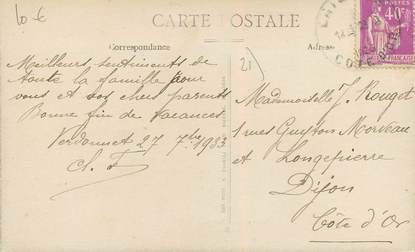 10 €
CARTE POSTALE
Correspondance
Adresse
21)
40c
Meilleurs sentiments de
toute la famille pour
vous et vos chers parents
Bonne fin de vacances
Verdonnet 27 7bre 1933
Mademoiselle J. Rouget
1 rues Guyton Morveau
et Longepierre
Dijon
Côte d'Or